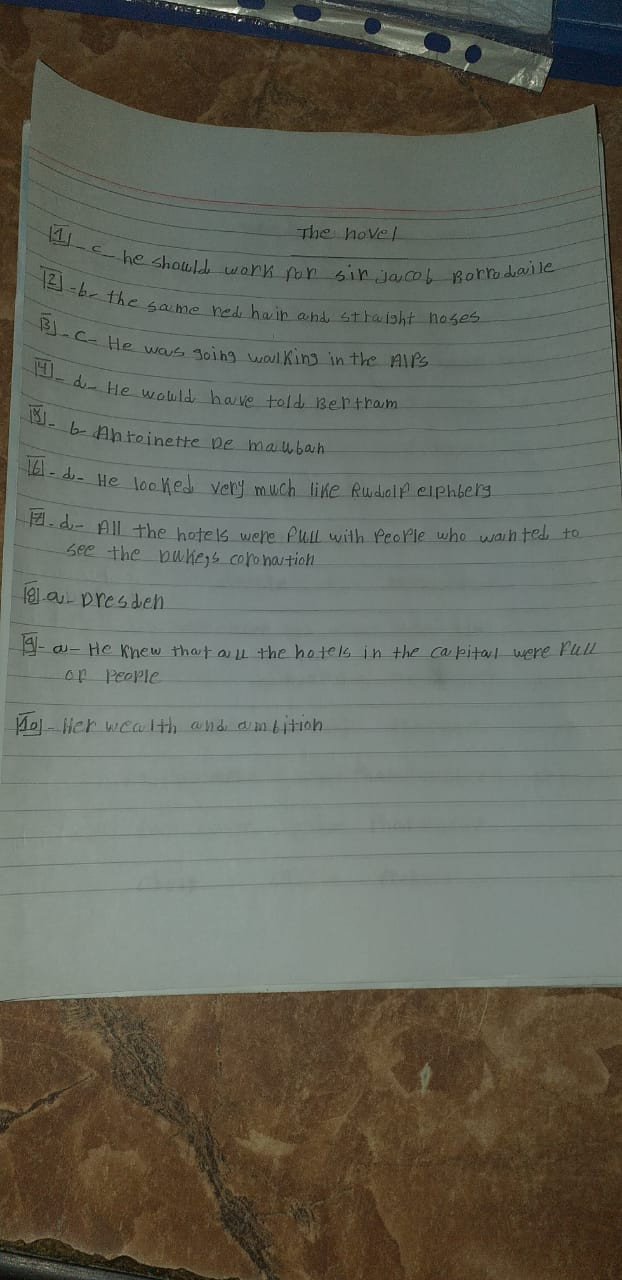 The novel
1 - c - he should work for sir Jacob Borrodaile
2 - b - the same red hair and straight noses
3 - c - He was going walking in the Alps
4 - d - He would have told Bertram
5 - b - Antoinette De mauban
6 - d - He looked very much like Rudolf elphberg
7 - d - All the hotels were full with people who wanted to
see the Duke,s coronation
8 a - Dresden
9 - a - He knew that all the hotels in the capital were full
of people
10 - Her wealth and ambition